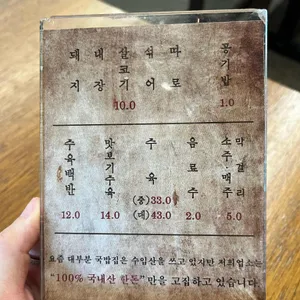 돼지
내장
살코기
섞어
따로
10.0
공기밥
1.0
수육백반
12.0
맛보기수육
14.0
수육
(중)33.0
(대)43.0
음료수
2.0
소주·맥주
막걸리
5.0
요즘 대부분 국밥집은 수입산을 쓰고 있지만 저희업소는
“100% 국내산 한돈” 만을 고집하고 있습니다